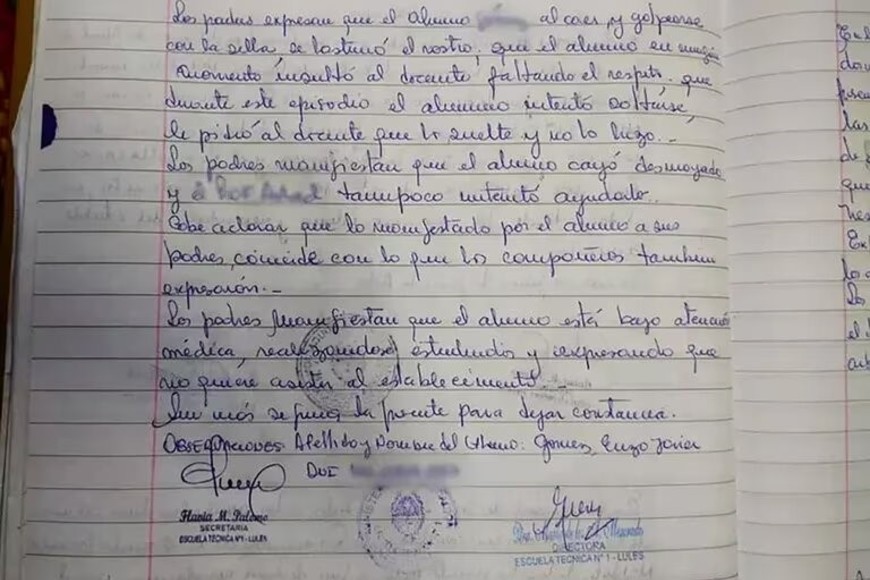 Los padres expresan que el alumno al caer y golpearse
con la silla se lastimó el rostro; que el alumno en ningún
momento insultó al docente, faltando el respeto. que
durante este episodio el alumno intentó soltarse,
le pidió al docente que lo suelte y no lo hizo.-
Los padres manifiestan que el alumno cayó desmayado
y tampoco intentó ayudarlo.
Cabe aclarar que lo manifestado por el alumno a sus
padres, coincide con lo que los compañeros también
expresaron.-
Los padres manifiestan que el alumno está bajo atención
médica, realizandose estudios y expresando que
no quiere asistir al establecimiento.-
Sin más se firma la presente para dejar constancia.
OBSERVACIONES: Apellido y Nombre del Alumno: Gomez, Enzo Javier
DNI
Flavia M. Palomo
SECRETARIA
ESCUELA TECNICA Nº1 - LULES
DIRECTORA
ESCUELA TECNICA Nº 1 - LULES